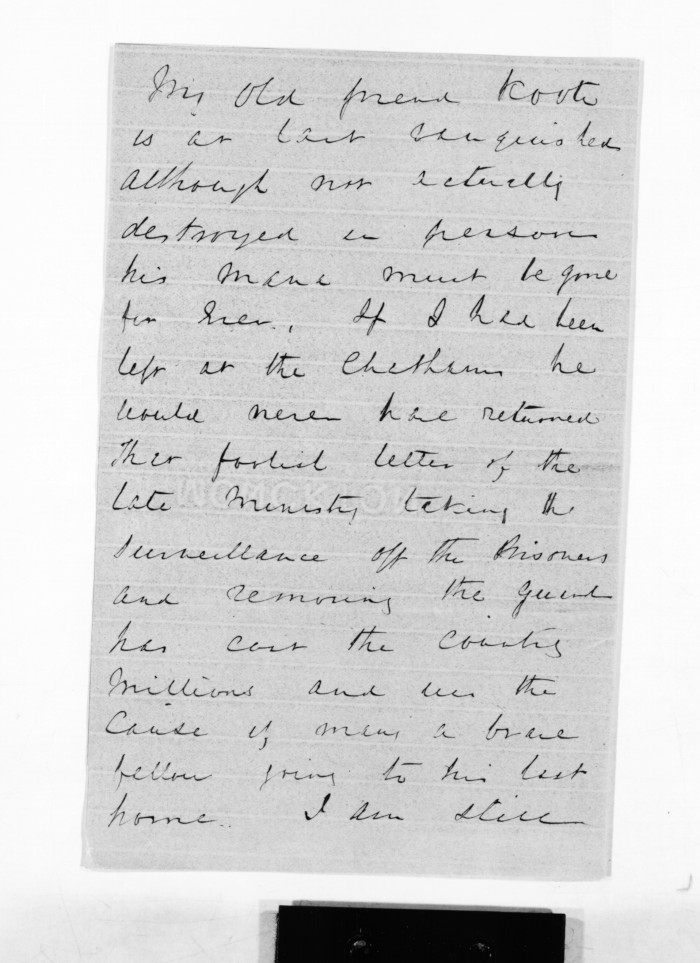 My Old friend Kooti
is at last vanquished
although not actually
destroyed in person
his mana must be gone
for Ever., If I had been
left at the Chathams he
would never have returned
That foolish letter of the
late Ministry taking the
Surveillance off the Prisoners
and removing the Guard
has cost the Country
Millions and was the
Cause of many a brave
fellow going to his last
home. I am still